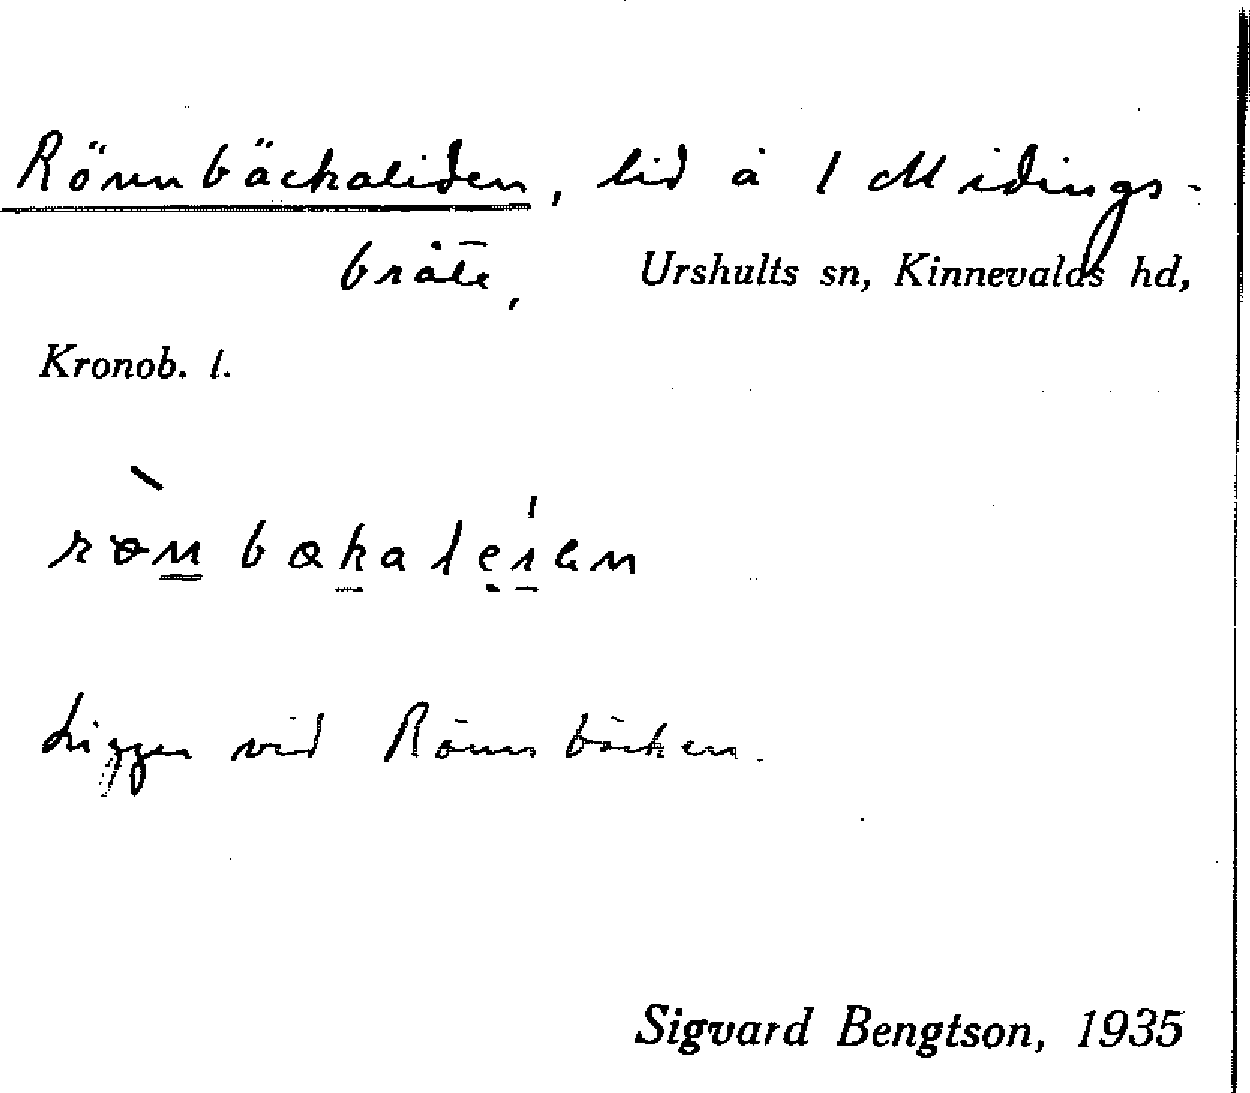 Rönnbäckaliden, lid å 1 Midings-
bråte, Urshults sn, Kinnevalds hd,
Kronob. l.
Ligger vid Rönnbäcken.
Sigvard Bengtson, 1935